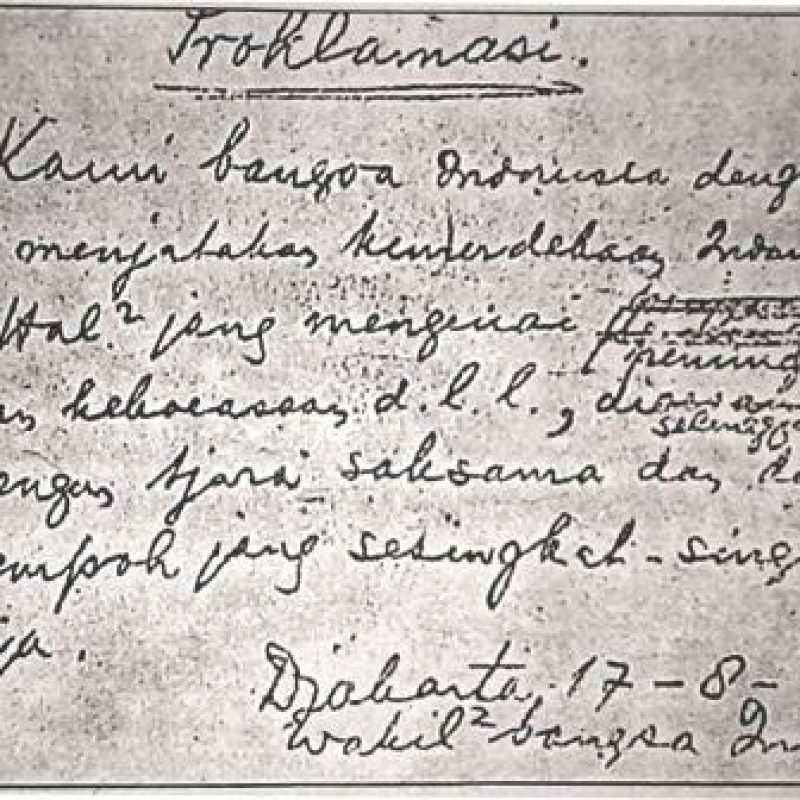 Proklamasi.
Kami bangsa Indonesia deng
menjatakan kemerdekaan Indon
Hal² jang mengenai
peming
an kekoeasaan d.l.l., di
seleng
engan tjara saksama dan da
empoh jang sesingkat-sing
ja.
Djakarta, 17-8-
Wakil² bangsa In